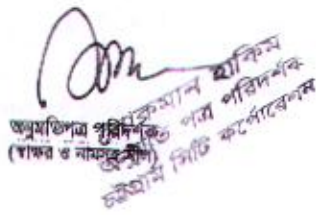 অনুমতিপত্র পরিদর্শক
(স্বাক্ষর ও নামসহ সীল)
হাকিম
পত্র পরিদর্শক
চট্টগ্রাম সিটি কর্পোরেশন